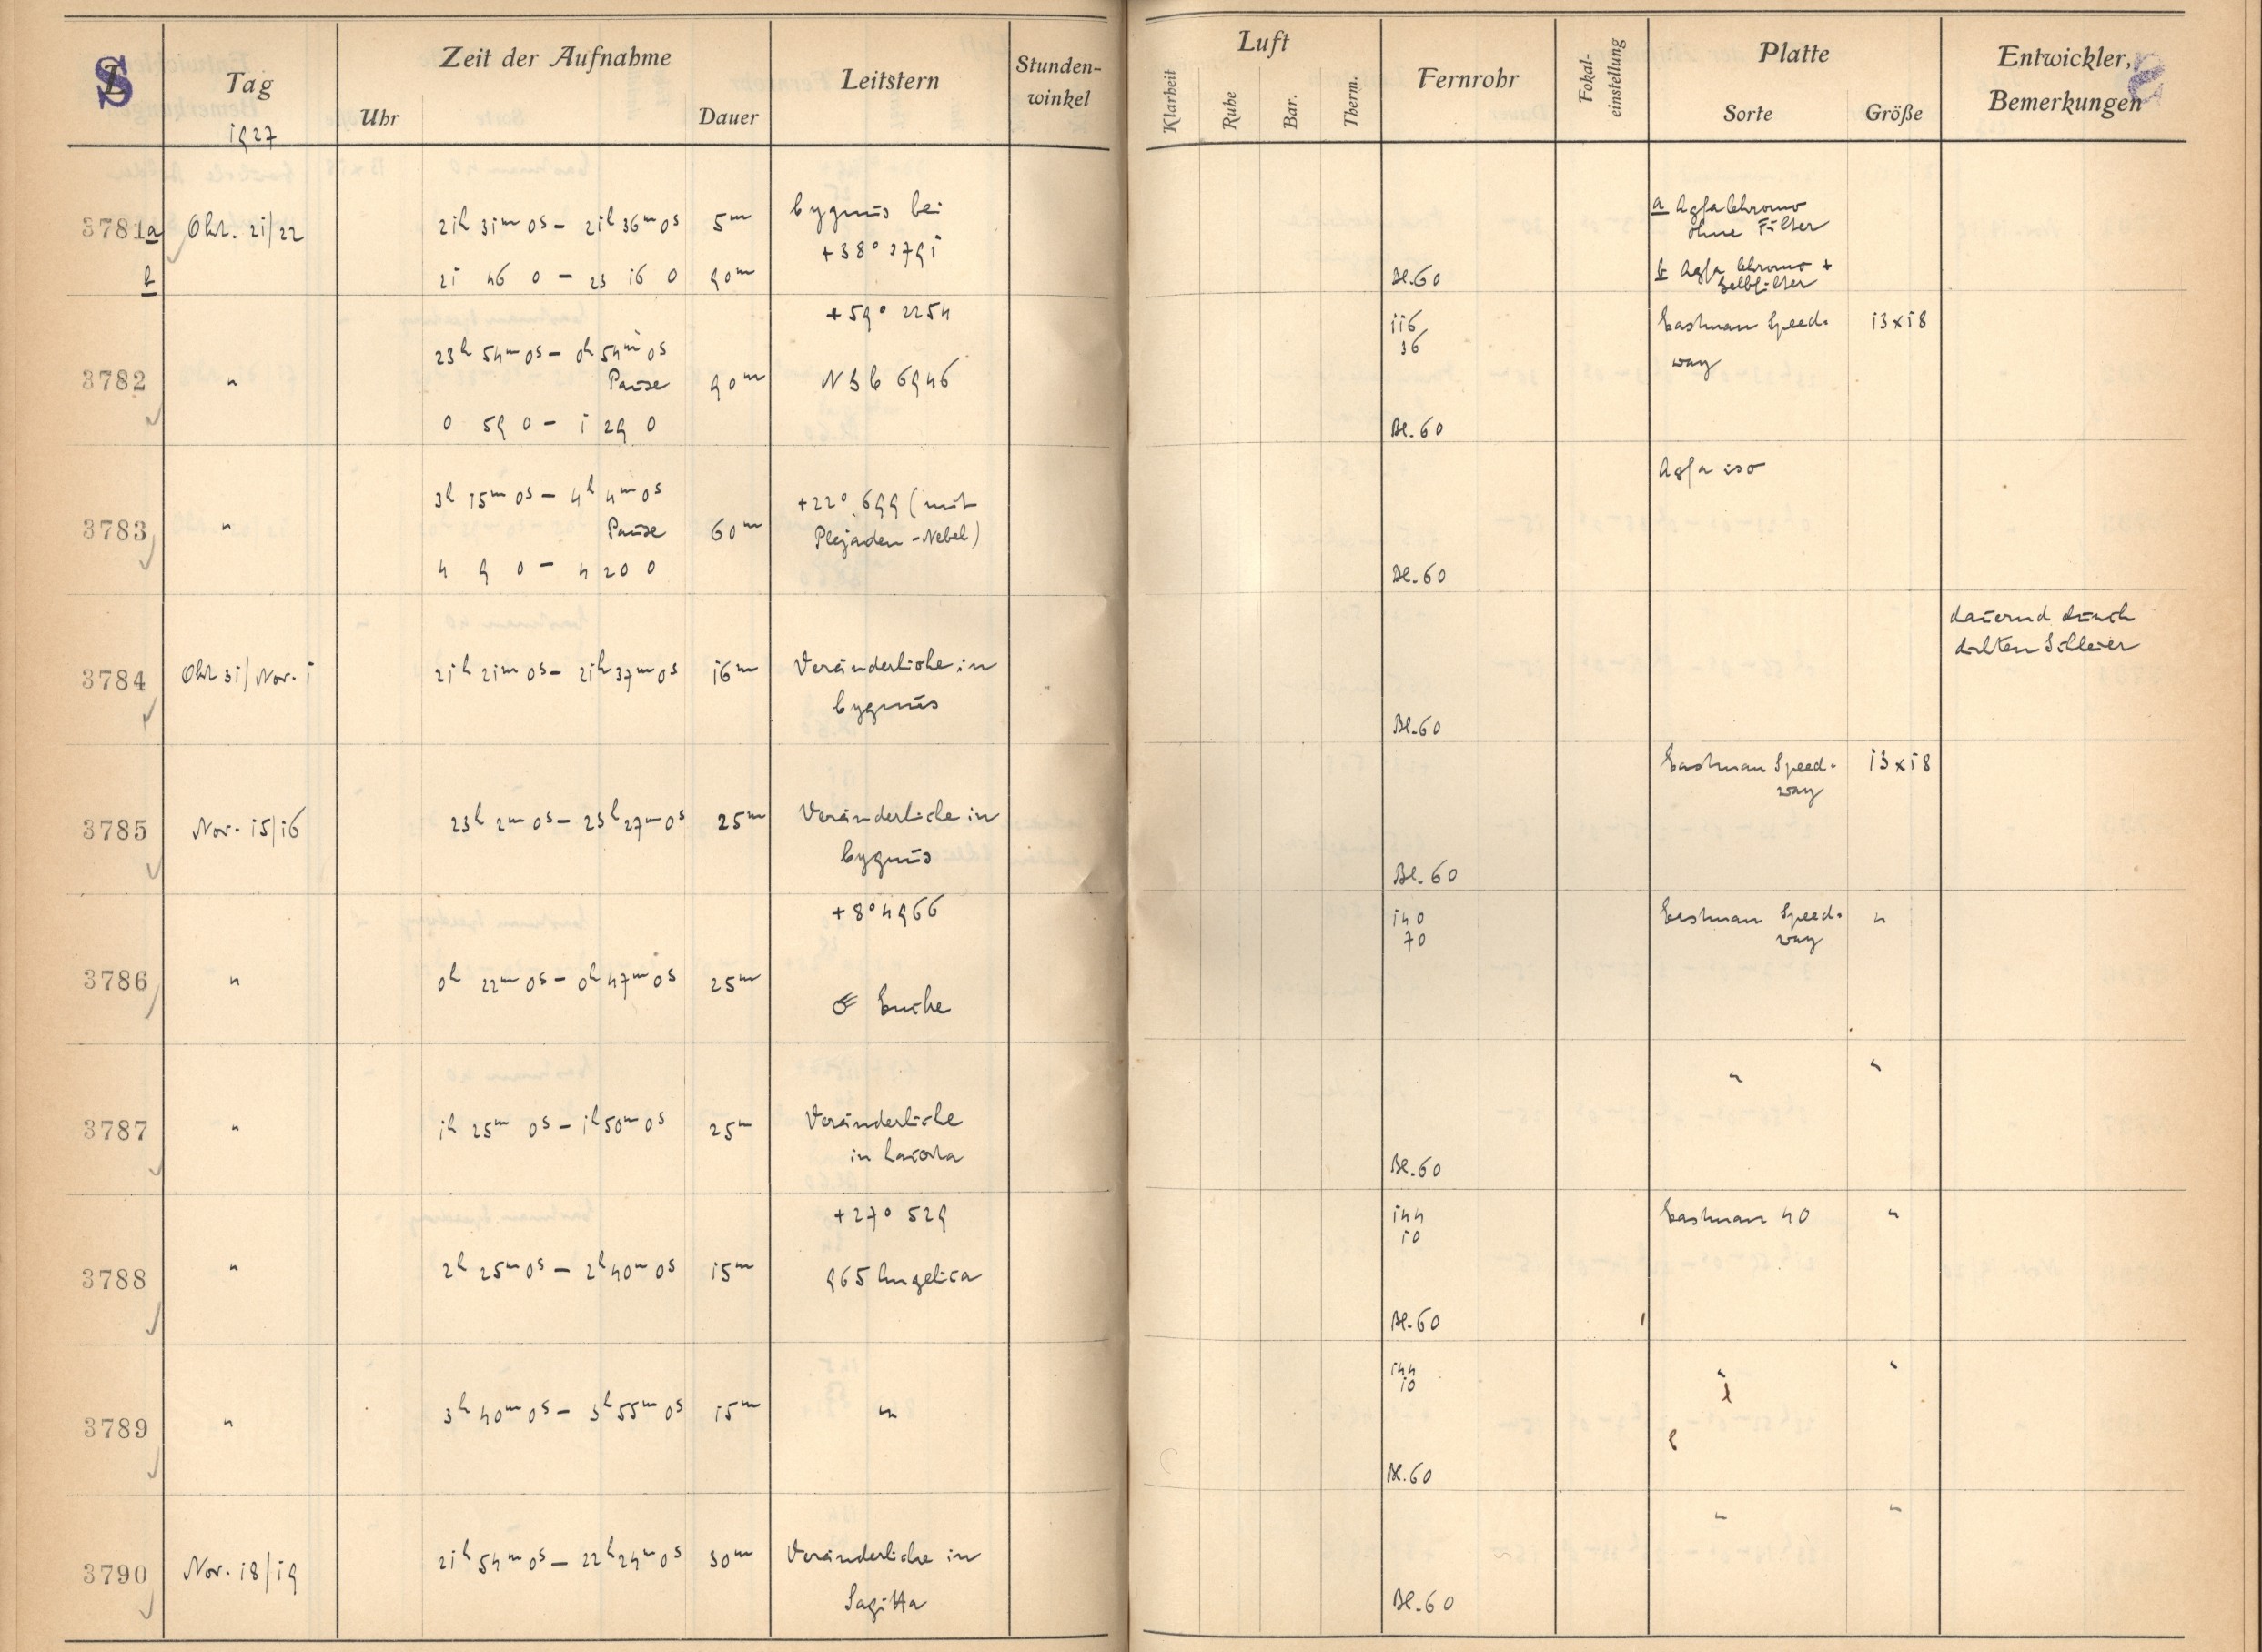 S Tag Zeit der Aufnahme Leitstern Stunden-winkel Luft Fernrohr Fokal-einstellung Platte Entwickler, Bemerkungen
1927 Uhr Dauer Klarheit Ruhe Bar. Therm. Sorte Größe
3781a Okt. 21/22 21h 31m 0s – 21h 36m 0s 5m Cygnus bei a Agfa Chromo
+38° 2791 ohne Filter
b 21 46 0 – 23 16 0 90m Bl. 60 b Agfa Chromo +
Gelbfilter
+59° 2254 116 Eastman Speed- 13x18
23h 54m 0s – 0h 54m 0s 36 way
3782 " Pause 90m NGC 6946
0 59 0 – 1 29 0 Bl. 60
Agfa iso
3h 15m 0s – 4h 4m 0s +22° 699 (mit
3783 " Pause 60m Plejaden-Nebel)
4 9 0 – 4 20 0 Bl. 60
dauernd durch
dichten Schleier
3784 Okt 31/Nov. 1 21h 21m 0s – 21h 37m 0s 16m Veränderliche in
Cygnus Bl. 60
Eastman Speed- 13x18
way
3785 Nov. 15/16 23h 2m 0s – 23h 27m 0s 25m Veränderliche in
Cygnus Bl. 60
+8° 4966 140 Eastman Speed- "
70 way
3786 " 0h 22m 0s – 0h 47m 0s 25m
☄ Encke
" "
3787 " 1h 25m 0s – 1h 50m 0s 25m Veränderliche
in Lacerta Bl. 60
+27° 529 144 Eastman 40 "
10
3788 " 2h 25m 0s – 2h 40m 0s 15m 965 Angelica
Bl. 60
144 " "
10
3789 " 3h 40m 0s – 3h 55m 0s 15m "
Bl. 60
" "
3790 Nov. 18/19 21h 54m 0s – 22h 24m 0s 30m Veränderliche in
Sagitta Bl. 60